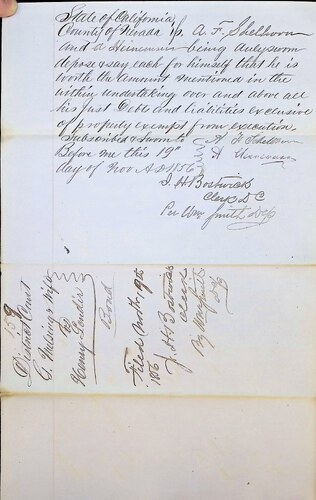 State of California
County of Nevada } ss. A. F. Shellhorn
and A Heineman being duly sworn
depose & say each for himself that he is
worth the amount mentioned in the
within undertaking over and above all
his just Debts and liabilities exclusive
of property exempt from execution
Subscribed & Sworn to
Before me this 19th
day of Nov A D 1856
J. H. Bostwick
Clerk D C
Per Wm Smith Dpy
159
District Court
G. & wife
vs
Henry
Bond
Filed Nov. 19th
1856
J. H. Bostwick
Clerk
By Wm Smith
Dpy